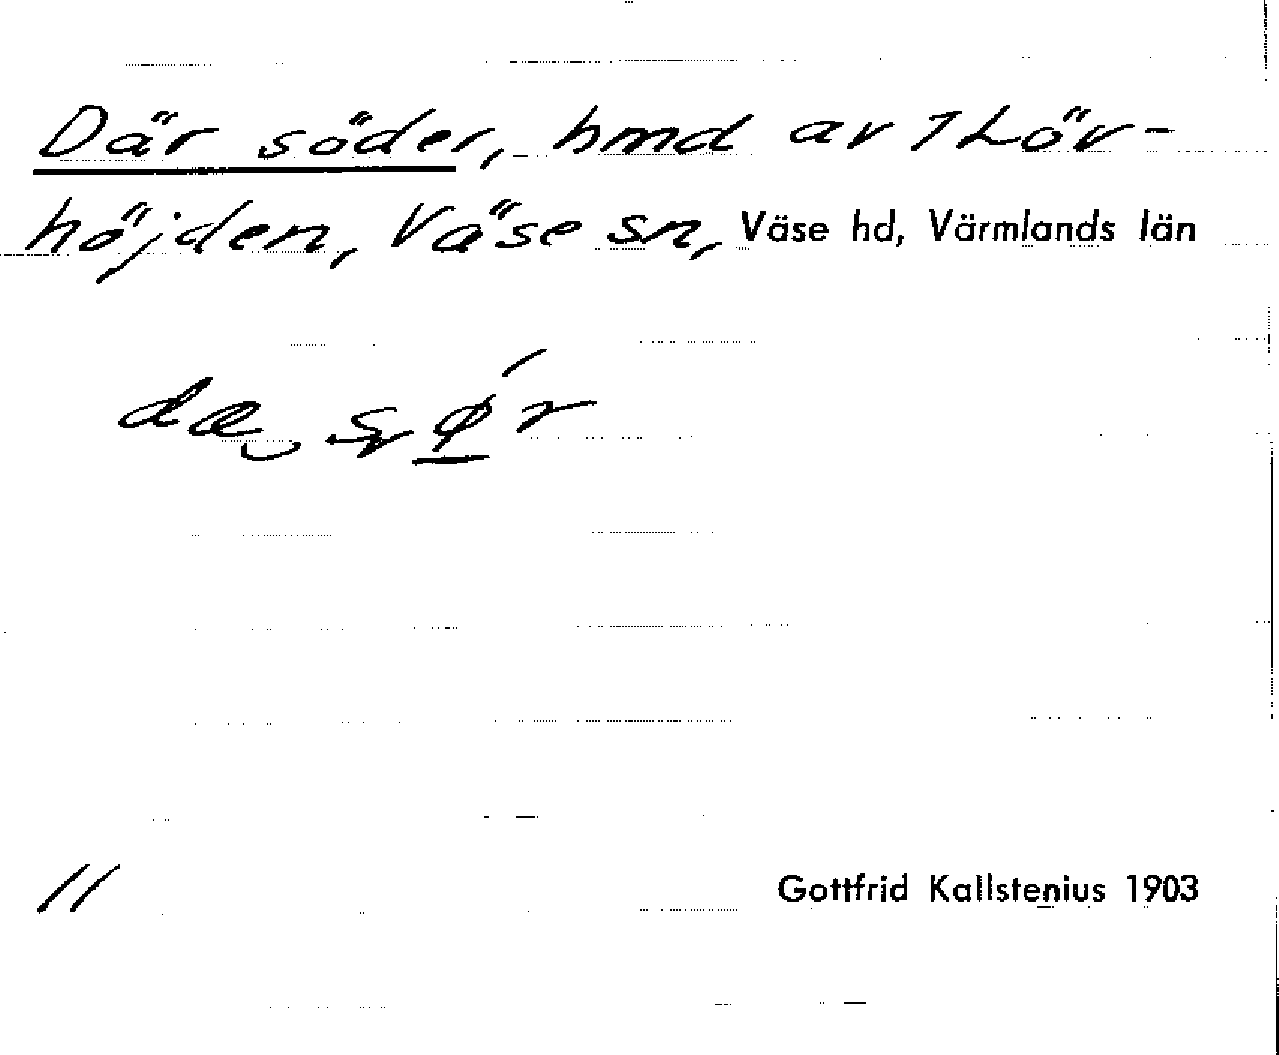 Där söder, hmd av 1 Löv-
höjden, Väse sn, Väse hd, Värmlands län
11
Gottfrid Kallstenius 1903